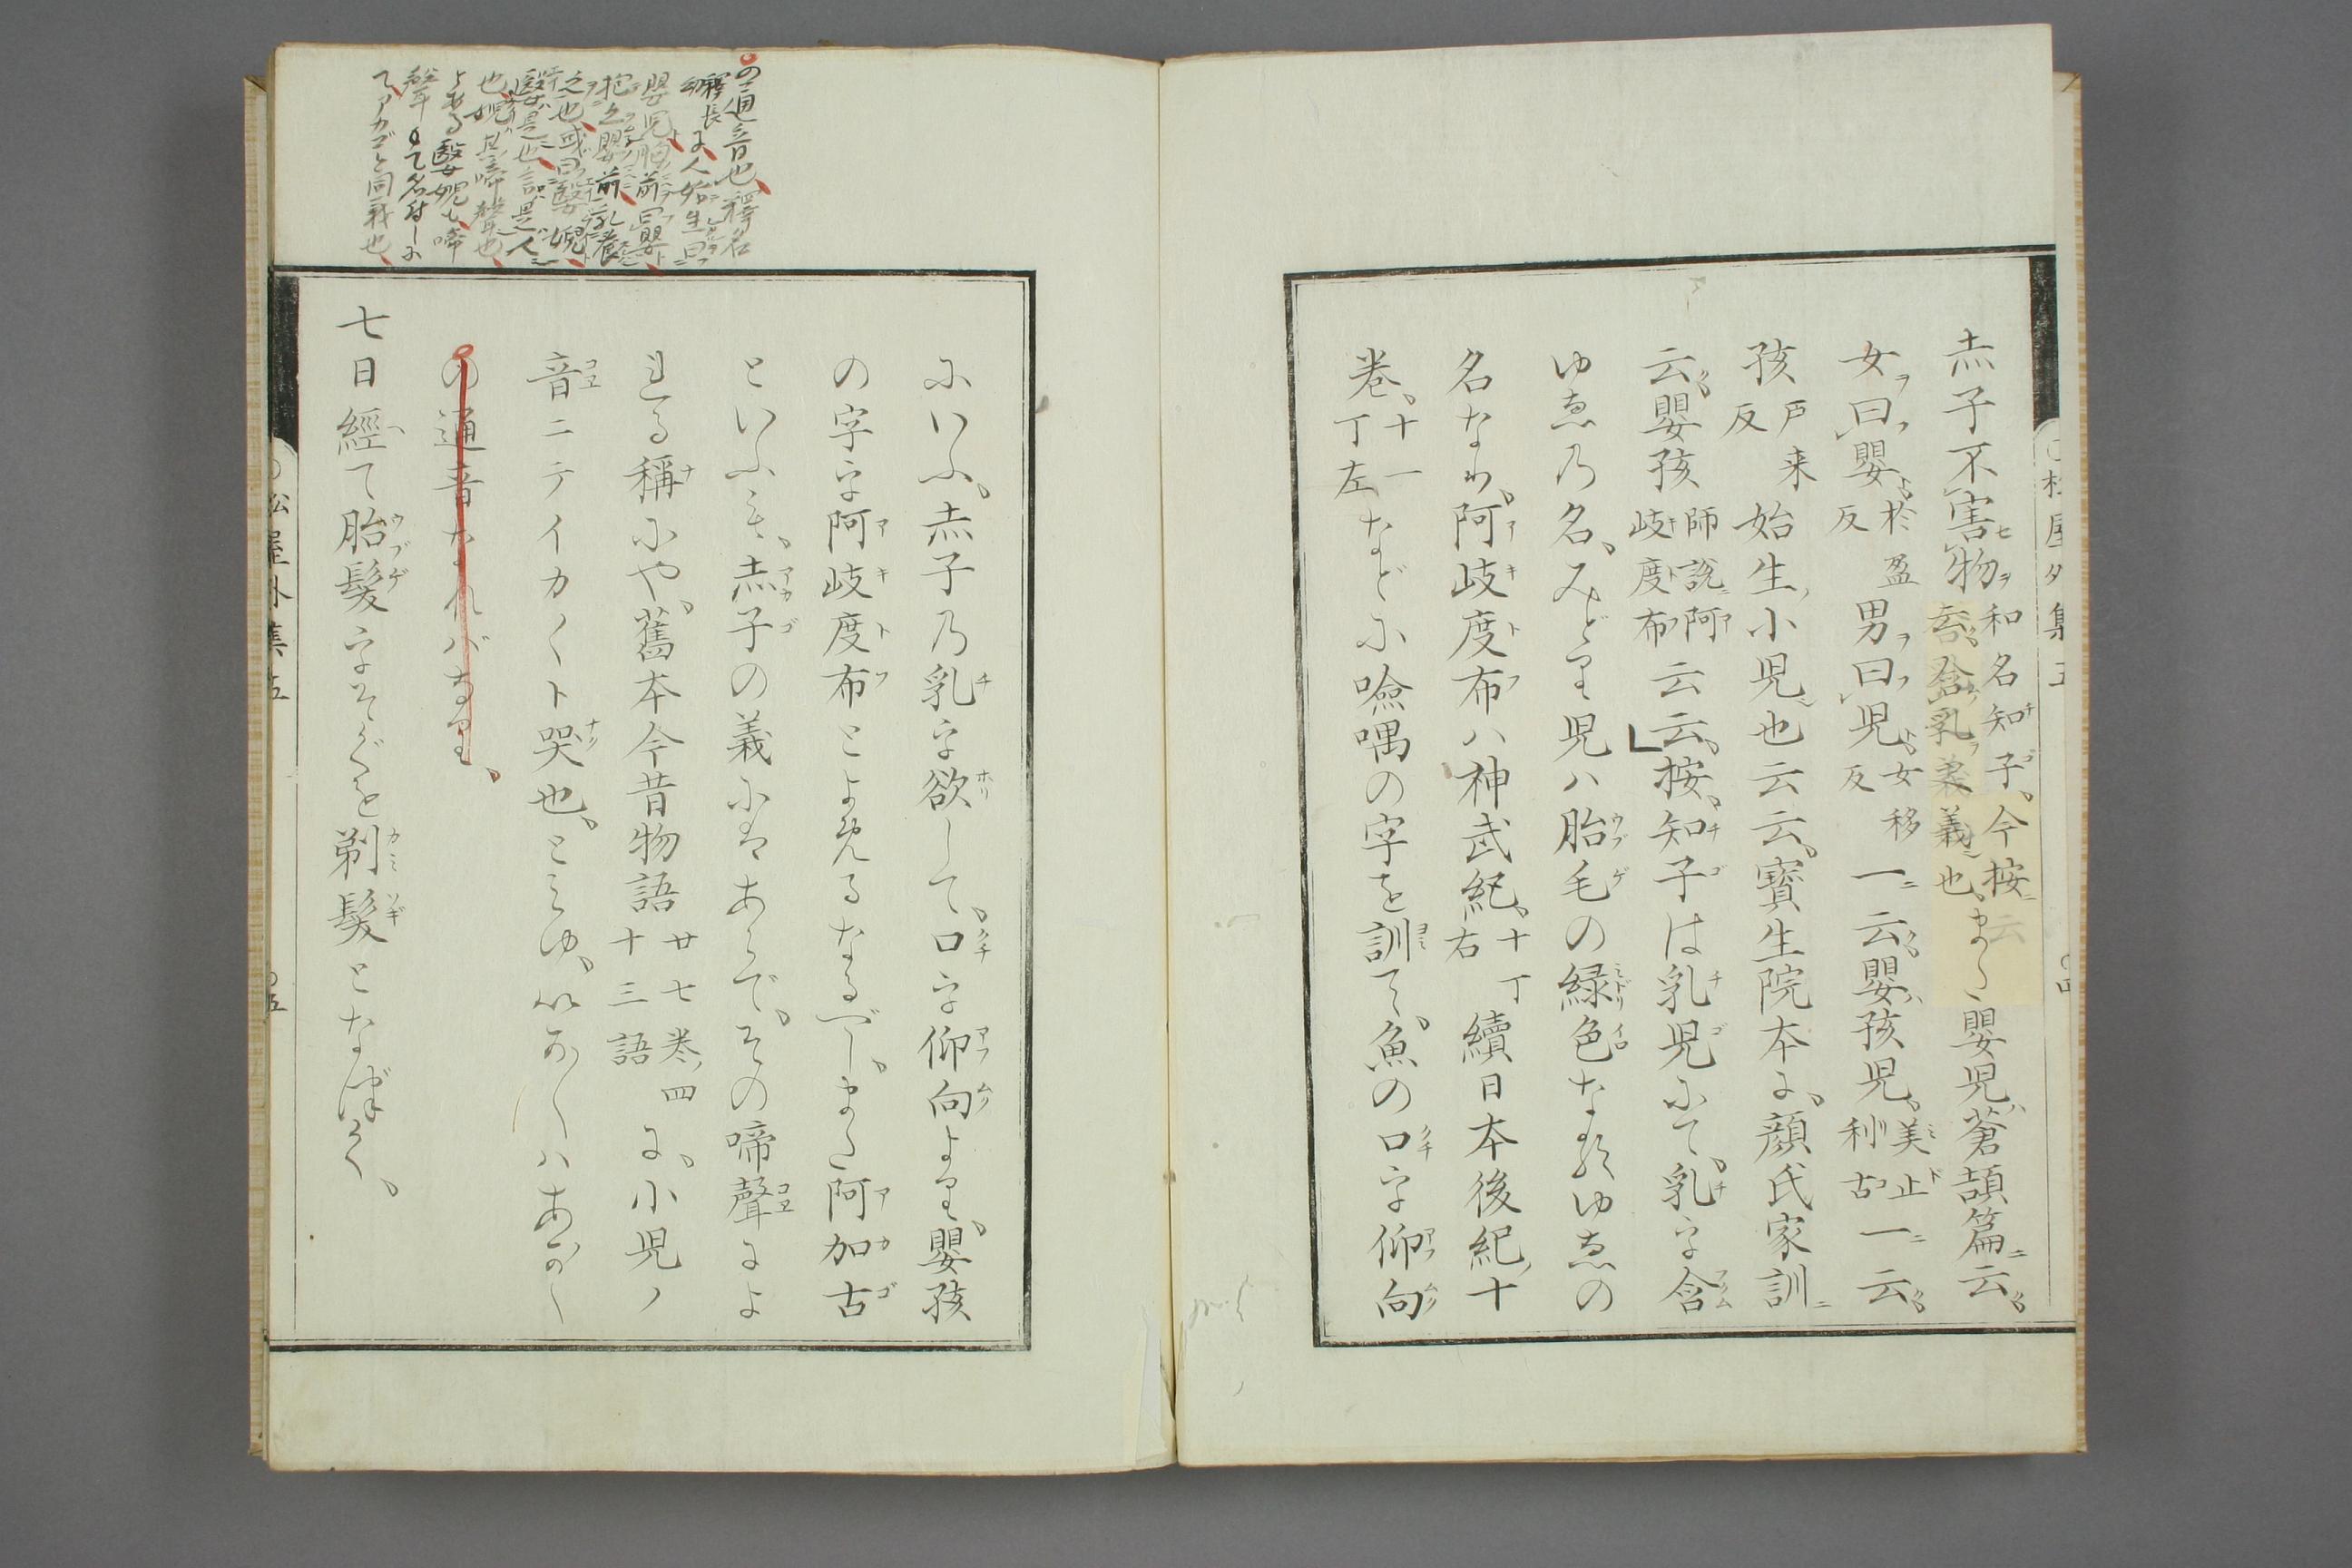 松屋外集五
赤子不害物和名知子、今按云含乳義也、また嬰児蒼頡篇ニ云
女ヲ曰嬰、於盈反男ヲ曰児、女移反一ニ云嬰孩児、美止利古一ニ云
孩戸来反始生ノ小児也云云、寳生院本に、顔氏家訓ニ
云嬰孩師説阿岐度布云云、按、知子は乳児にて、乳を含
ゆゑの名、みどり児ハ胎毛の緑色なるゆゑの
名なり、阿岐度布ハ神武紀、十丁右續日本後紀ノ十
巻、十一丁左などに噞喁の字を訓て、魚の口を仰向
にいふ、赤子の乳を欲して、口を仰向より、嬰孩
の字を阿岐度布とよめるなるべし、また阿加古
といふも、赤子の義にはあらで、その啼聲によ
れる稱にや、舊本今昔物語廿七巻ノ四十三語に、小児ノ
音ニテイカ〱ト哭也、とみゆ、いか〱ハあか〱
の通音なればなり、
七日經て胎髪をそぐを剃髪となばいふ、
松屋外集五
〇五
の通音也、釋名
釋長幼に、人始生曰
嬰児、胸前曰嬰
抱之嬰前乳養
之也、或曰嫛婗
嫛是也、言是人
也、婗其啼聲也、
とある嫛婗も、啼
聲もて名付しに
て、アカゴと同義也、